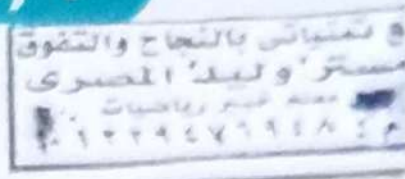 مع تمنياتى بالنجاح والتفوق
مستر / وليد المصرى
معلم خبير رياضيات
م : ٠١٢٢٩٤٧٦٩٤٨